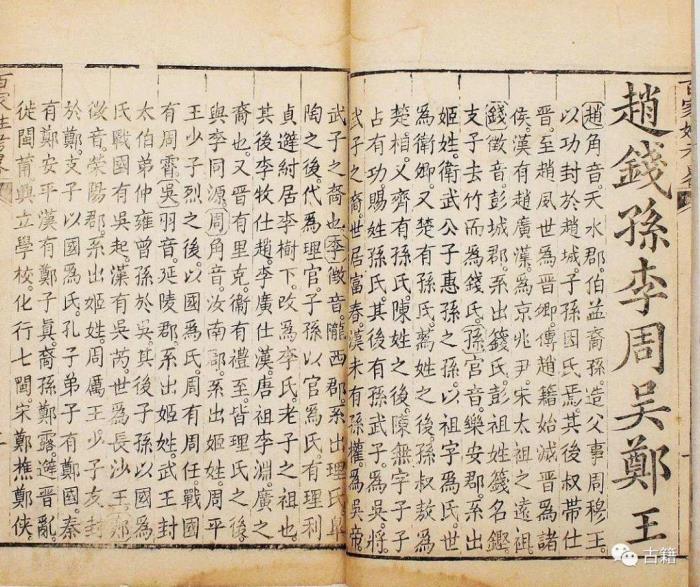 趙錢孫李周吳鄭王
趙角音。天水郡。伯益裔孫。造父事周穆王。
以功封於趙城。子孫因氏焉。其後叔帶仕
晉。至趙夙世為晉卿。傳趙籍始滅晉為諸
侯。漢有趙廣漢。為京兆尹。宋太祖之遠祖。
錢徵音。彭城郡。系出籛氏。彭祖姓籛名鏗。
支子去竹而為錢氏。孫宮音。樂安郡。系出
姬姓。衛武公子惠孫之孫。以祖字為氏。世
為衛卿。又楚有孫氏。蒍姓之後。孫叔敖為
楚相。又齊有孫氏。陳姓之後。陳無字子子
占有功賜姓孫氏。其後有孫武。為吳將。
武子之裔。世居富春。漢末有孫權。為吳帝
武子之裔也。李徵音。隴西郡。系出理氏。皐
陶之後。代為理官。子孫以官為氏。有理利
貞。避紂居李樹下。改為李氏。老子之祖也。
其後李牧仕趙。李廣仕漢。唐祖李淵。廣之
裔也。又晉有里克。衛有禮至。皆理氏之後。
與李同源。周角音。汝南郡。系出姬姓。周平
王少子烈之後。以國為氏。周有周任。戰國
有周霄。吳羽音。延陵郡。系出姬姓。武王封
太伯弟仲雍曾孫於吳。其後子孫以國為
氏。戰國有吳起。漢有吳芮。世為長沙王。鄭
徵音。滎陽郡。系出姬姓。周厲王少子友封
於鄭。支子以國為氏。孔子弟子有鄭國。秦
有鄭安平。漢有鄭子真。裔孫鄭露。避晉亂。
徙閩莆。興立學校。化行七閩。宋鄭樵鄭俠
古籍